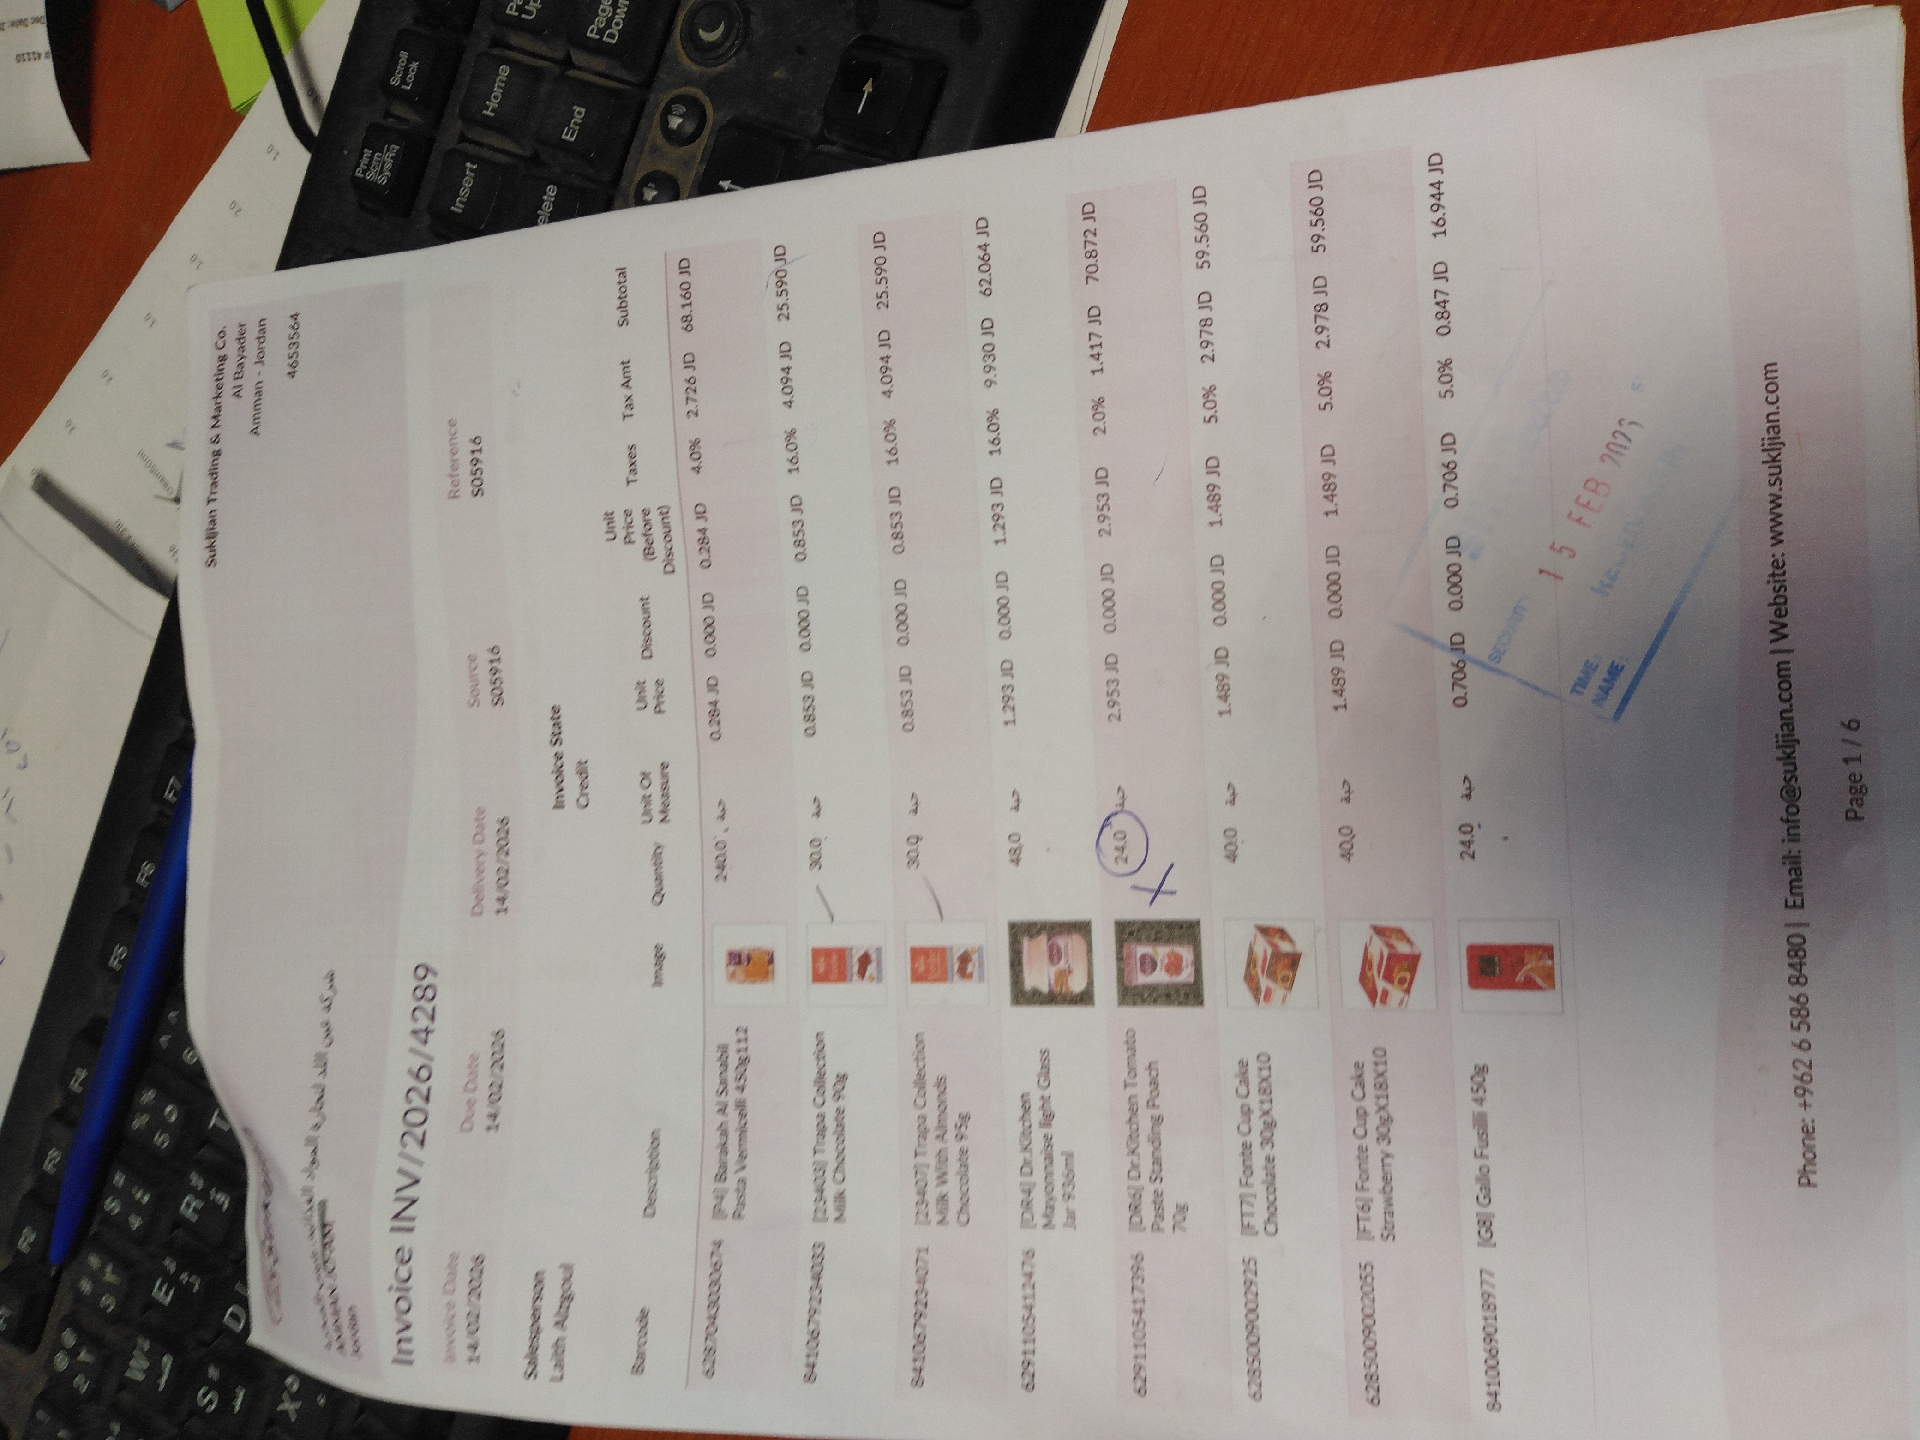 Sukljian Trading & Marketing Co.
Al Bayader
Amman - Jordan
4653564
Jordan
Invoice INV/2026/4289
Invoice Date Due Date Delivery Date Source Reference
14/02/2026 14/02/2026 14/02/2026 S05916 S05916
Salesperson Invoice State
Laith Alzgoul Credit
Barcode Description Image Quantity Unit Of Measure Unit Price Discount Unit Price (Before Discount) Taxes Tax Amt Subtotal
6287043030674 [P4] Barakah Al Sanabil 240.0 حبة 0.284 JD 0.000 JD 0.284 JD 4.0% 2.726 JD 68.160 JD
Pasta Vermicelli 450g112
8410679234033 [23403] Trapa Collection 30.0 حبة 0.853 JD 0.000 JD 0.853 JD 16.0% 4.094 JD 25.590 JD
Milk Chocolate 90g
8410679234071 [23407] Trapa Collection 30.0 حبة 0.853 JD 0.000 JD 0.853 JD 16.0% 4.094 JD 25.590 JD
Milk With Almonds
Chocolate 95g
6291105412476 [DR4] Dr.Kitchen 48.0 حبة 1.293 JD 0.000 JD 1.293 JD 16.0% 9.930 JD 62.064 JD
Mayonnaise light Glass
Jar 936ml
6291105417396 [DR6] Dr.Kitchen Tomato 24.0 حبة 2.953 JD 0.000 JD 2.953 JD 2.0% 1.417 JD 70.872 JD
Paste Standing Poach
70g
6285009002925 [FT7] Fonte Cup Cake 40.0 حبة 1.489 JD 0.000 JD 1.489 JD 5.0% 2.978 JD 59.560 JD
Chocolate 30gX18X10
6285009002055 [FT6] Fonte Cup Cake 40.0 حبة 1.489 JD 0.000 JD 1.489 JD 5.0% 2.978 JD 59.560 JD
Strawberry 30gX18X10
8410069018977 [G8] Gallo Fusilli 450g 24.0 حبة 0.706 JD 0.000 JD 0.706 JD 5.0% 0.847 JD 16.944 JD
SECURITY
15 FEB
TIME:
NAME:
Phone: +962 6 586 8480 | Email: info@sukljian.com | Website: www.sukljian.com
Page 1 / 6
Print Scrn SysRq
Scroll Lock
Insert
Home
Page Up
End
Page Down
F2
F3
F4
F5
F6
F7